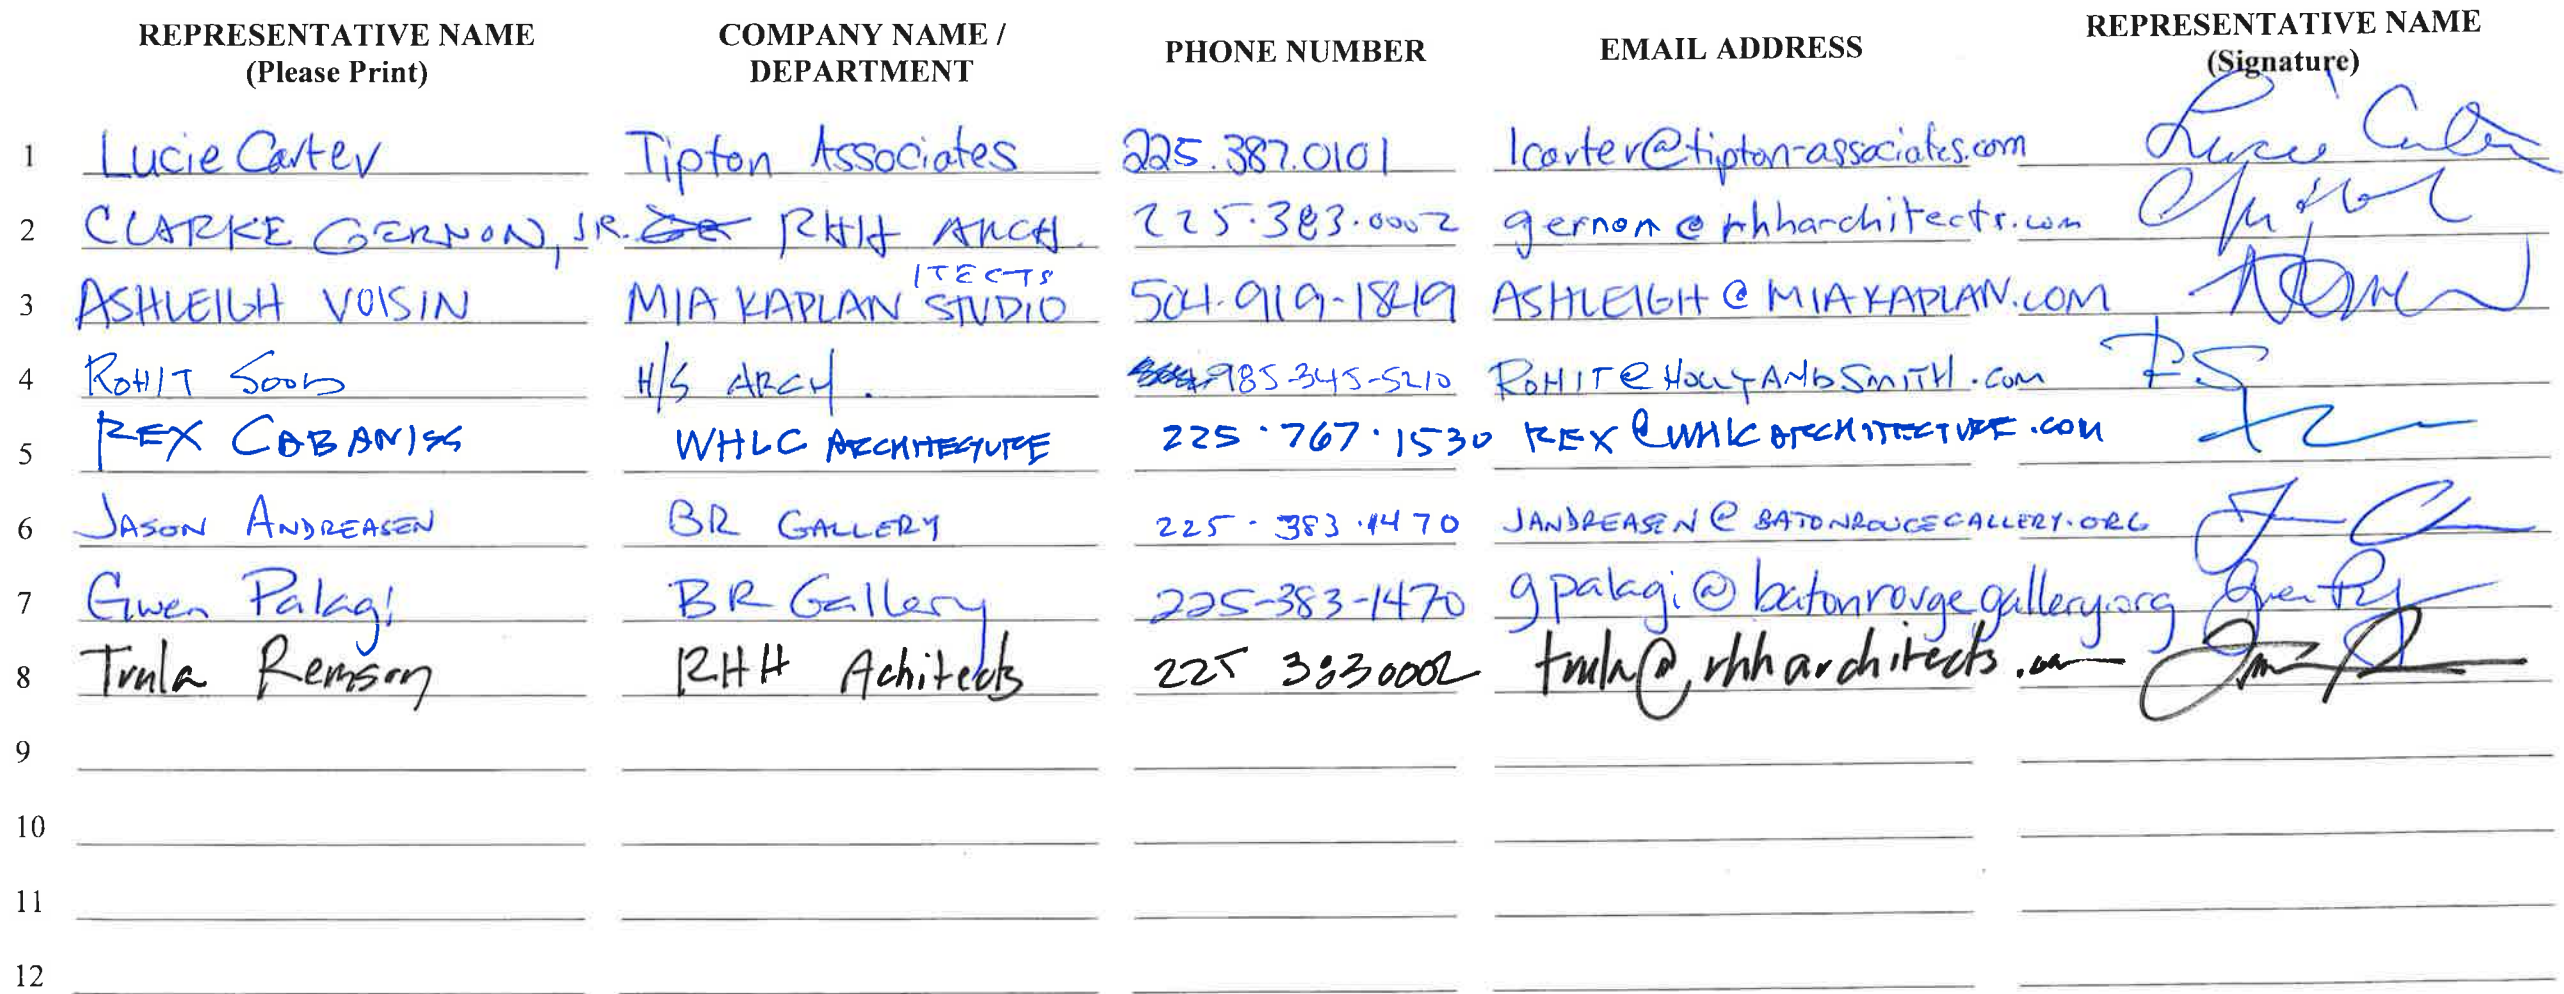 REPRESENTATIVE NAME (Please Print) COMPANY NAME / DEPARTMENT PHONE NUMBER EMAIL ADDRESS REPRESENTATIVE NAME (Signature)
1 Lucie Carter Tipton Associates 225.387.0101 lcarter@tipton-associates.com
2 CLARKE GERNON, JR. RHH ARCH 225.383.0002 gernon@rhharchitects.com
ITECTS
3 ASHLEIGH VOISIN MIA KAPLAN STUDIO 504.919-1849 ASHLEIGH@MIAKAPLAN.COM
4 ROHIT SOOD H/S ARCH. 985-345-5210 ROHIT@HOLLYANDSMITH.COM
5 REX CABANISS WHLC ARCHITECTURE 225.767.1530 REX@WHLCARCHITECTURE.COM
6 JASON ANDREASEN BR GALLERY 225-383-1470 JANDREASEN@BATONROUGEGALLERY.ORG
7 Gwen Palagi BR Gallery 225-383-1470 gpalagi@batonrougegallery.org
8 Trula Remson RHH Achitects 225 3830002 trula@rhharchitects.com
9
10
11
12